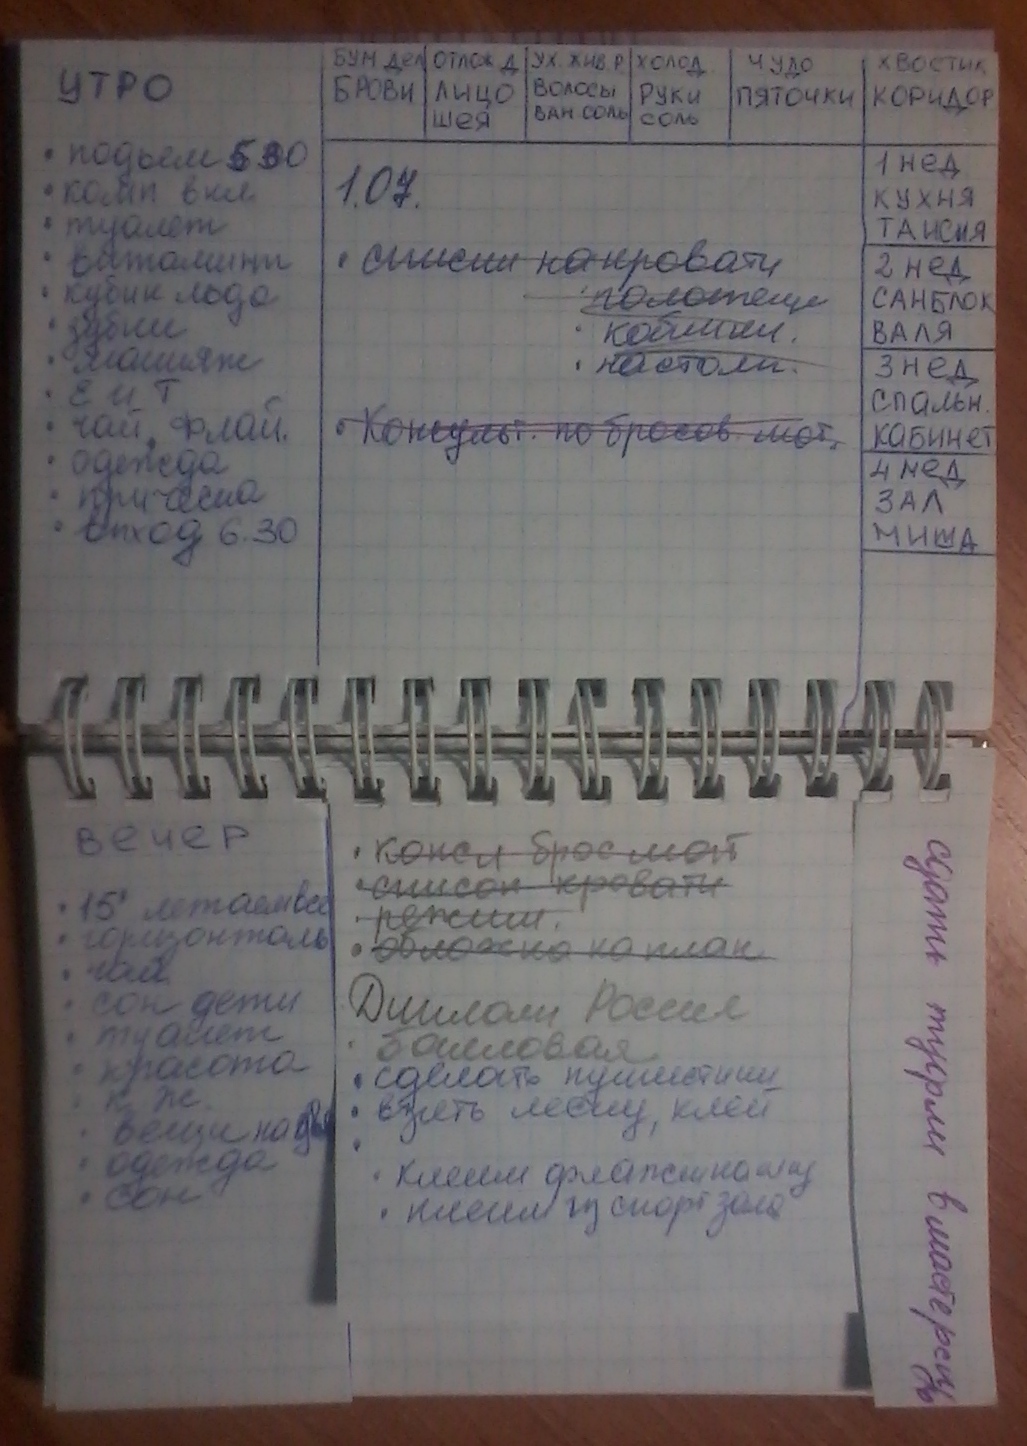 УТРО
• подъем 5 30
• комп вкл
• туалет
• витамины
• кубик льда
• зубки
• макияж
• Е и Т
• чай, флай.
• одежда
• прическа
• выход 6.30
БУМ ДЕЛ
БРОВИ
ОТЛОЖ Д
ЛИЦО
ШЕЯ
УХ. ЖИВ. Р.
ВОЛОСЫ
ВАН. СОЛЬ
ХОЛОД
РУКИ
СОЛЬ
ЧУДО
ПЯТОЧКИ
ХВОСТИК
КОРИДОР
1.07.
• списки на кровати
• полотенца
• кабинки.
• настолы.
• Консульт. по бросов. мот.
1 НЕД
КУХНЯ
ТАИСИЯ
2 НЕД
САНБЛОК
ВАЛЯ
3 НЕД
СПАЛЬН.
КАБИНЕТ
4 НЕД
ЗАЛ
МИША
ВЕЧЕР
• 15' летаем все
• горизонталь
• чай
• сон дети
• туалет
• красота
• к. ж.
• вещи на
• одежда
• сон
• консл брос мот
• список кровати
• режим.
• обложка на план
Диплом Россия
•
• сделать пушистики
• взять леску, клей
•
• клеим
• клеим из спорт зала
сдать туфли в мастерскую